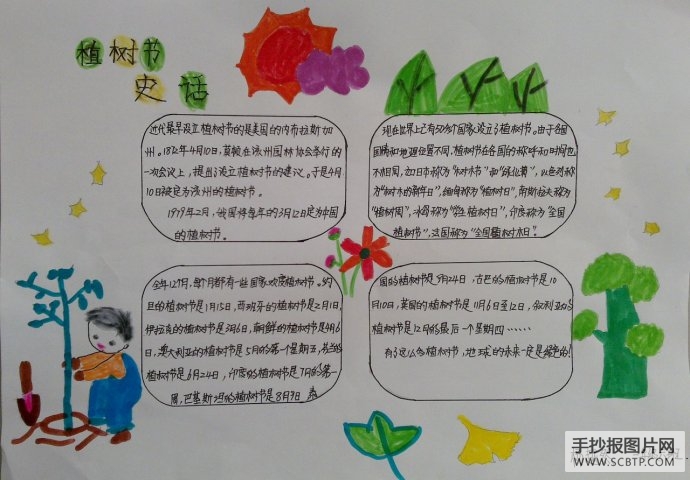 植树节
史话
近代最早设立植树节的是美国的内布拉斯加
州。1872年4月10日,莫顿在该州园林协会举行的
一次会议上,提出了设立植树节的建议。于是4月
10日被定为该州的植树节。
1979年2月,我国将每年的3月12日定为中国
的植树节。
现在世界上已有50多个国家设立了植树节。由于各国
国情和地理位置不同,植树节在各国的称呼和时间也
不相同,如日本称为"树木节"和"绿化周",以色列称
为"树木的新年日",缅甸称为"植树日",南斯拉夫称为
"植树周",冰岛称为"学生植树日",印度称为"全国
植树节",法国称为"全国树木日"。
全年12个月,每个月都有一些国家欢度植树节。约
旦的植树节是1月15日,西班牙的植树节是2月1日,
伊拉克的植树节是3月6日,朝鲜的植树节是4月6
日,澳大利亚的植树节是5月的第一个星期五,芬兰的
植树节是6月24日,印度的植树节是7月的第一
周,巴基斯坦的植树节是8月9日 泰
国的植树节是9月24日,古巴的植树节是10
月10日,英国的植树节是11月6日至12日,叙利亚的
植树节是12月的最后一个星期四……
有了这么多植树节,地球的未来一定是绿色的!
手抄报图片网
WWW.SCBTP.COM